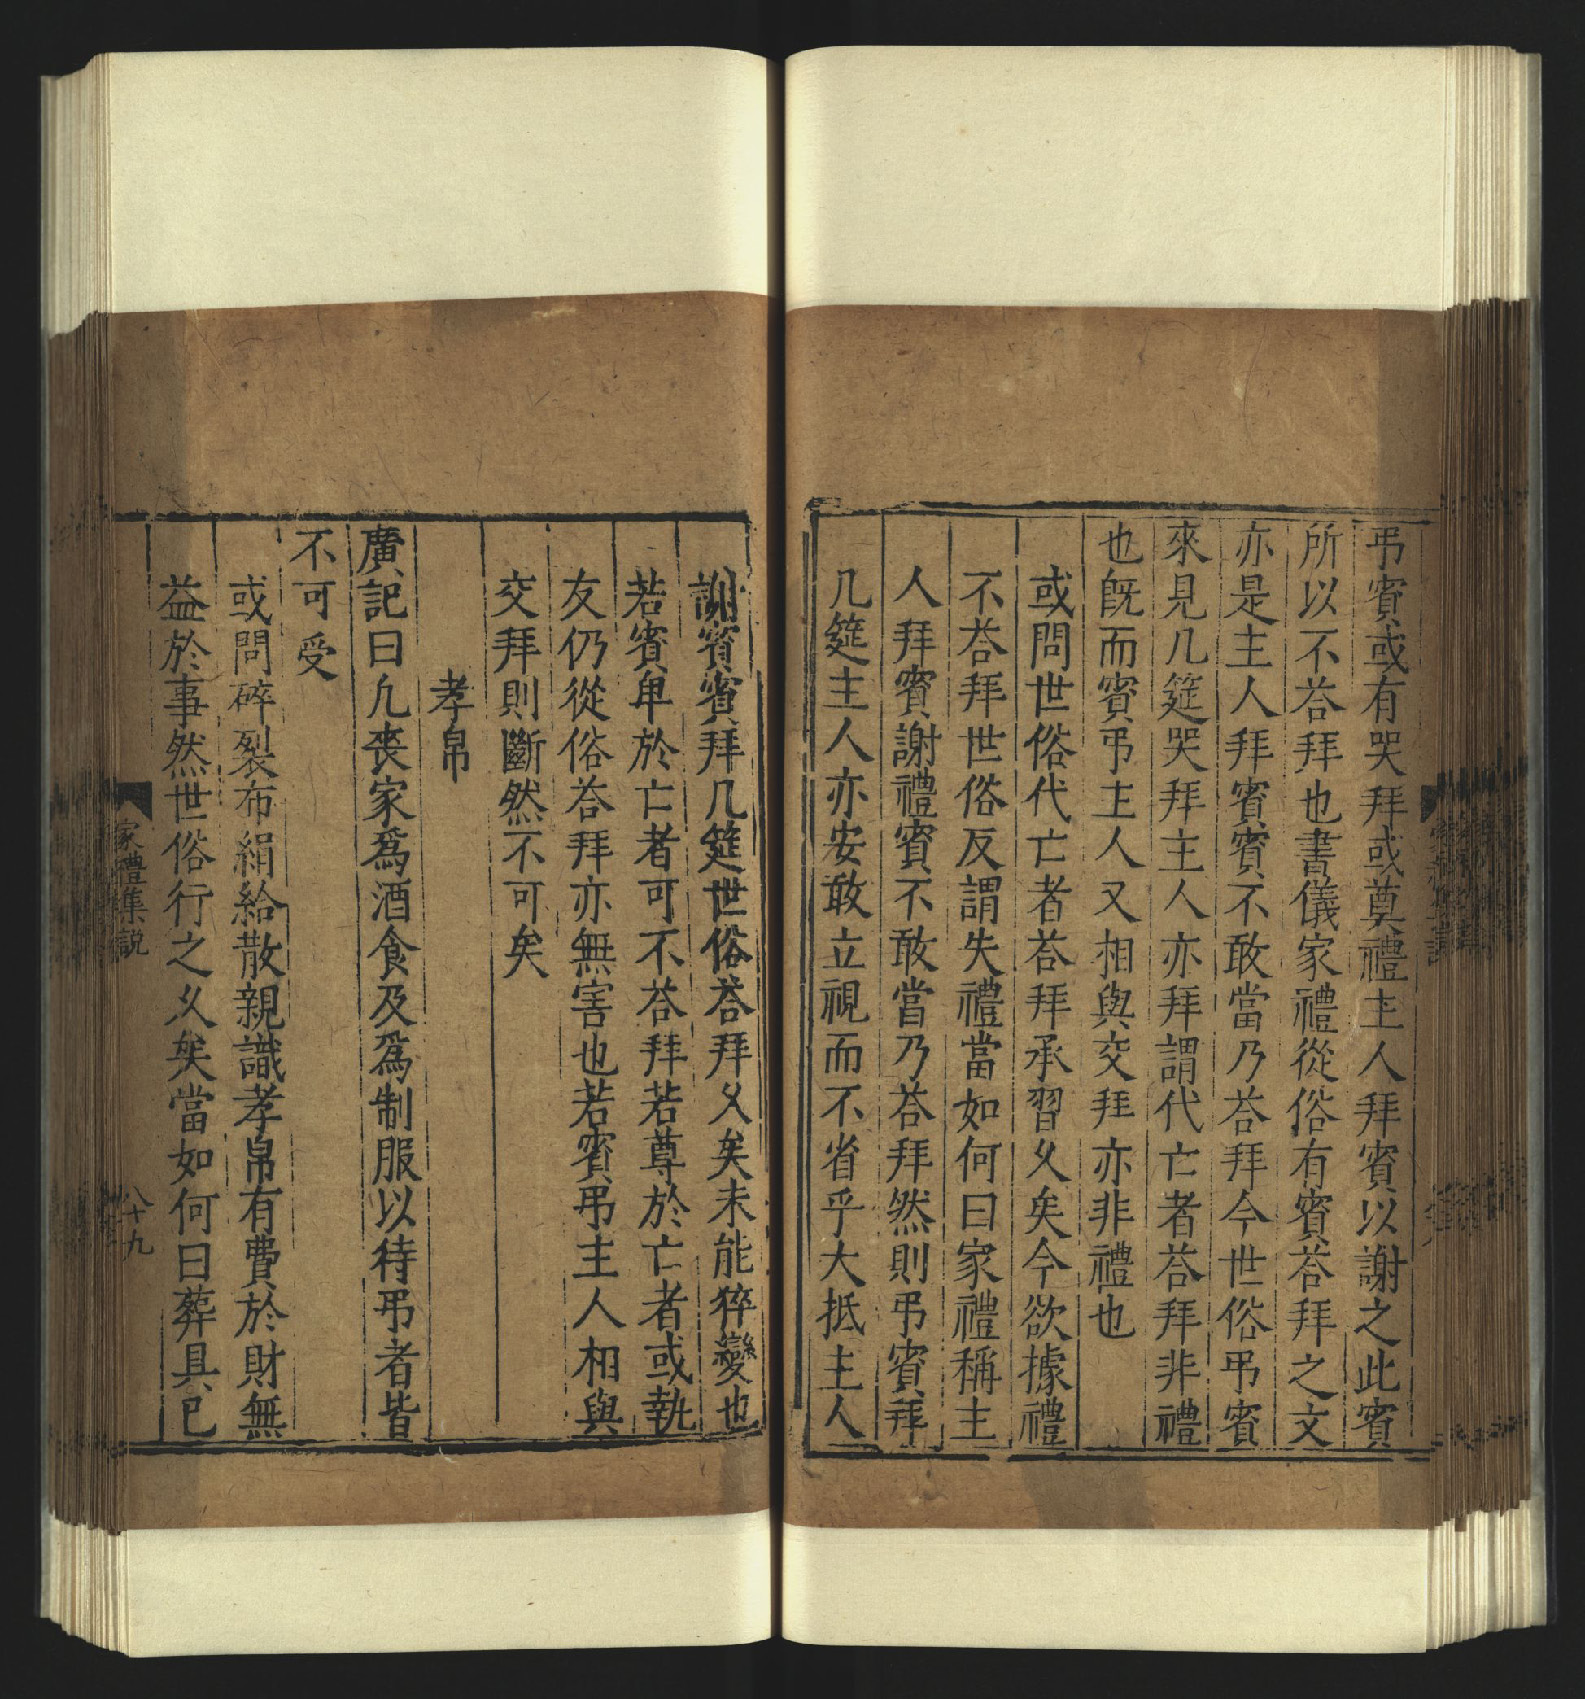 弔賔或有哭拜或奠禮主人拜賔以謝之此賔
所以不荅拜也書儀家禮從俗有賔荅拜之文
亦是主人拜賔賔不敢當乃荅拜今世俗弔賔
來見几筵哭拜主人亦拜謂代亡者荅拜非禮
也旣而賔弔主人又相與交拜亦非禮也
或問世俗代亡者荅拜承習乆矣今欲據禮
不荅拜世俗反謂失禮當如何曰家禮稱主
人拜賔謝禮賔不敢當乃荅拜然則弔賔拜
几筵主人亦安敢立視而不省乎大抵主人
謝賔賔拜几筵世俗荅拜乆矣未能猝變也
若賔卑於亡者可不荅拜若尊於亡者或執
友仍從俗荅拜亦無害也若賔弔主人相與
交拜則斷然不可矣
孝帛
廣記曰凢喪家爲酒食及爲制服以待弔者皆
不可受
或問碎裂布絹給散親識孝帛有費於財無
益於事然世俗行之乆矣當如何曰葬具已
家禮集說
八十九